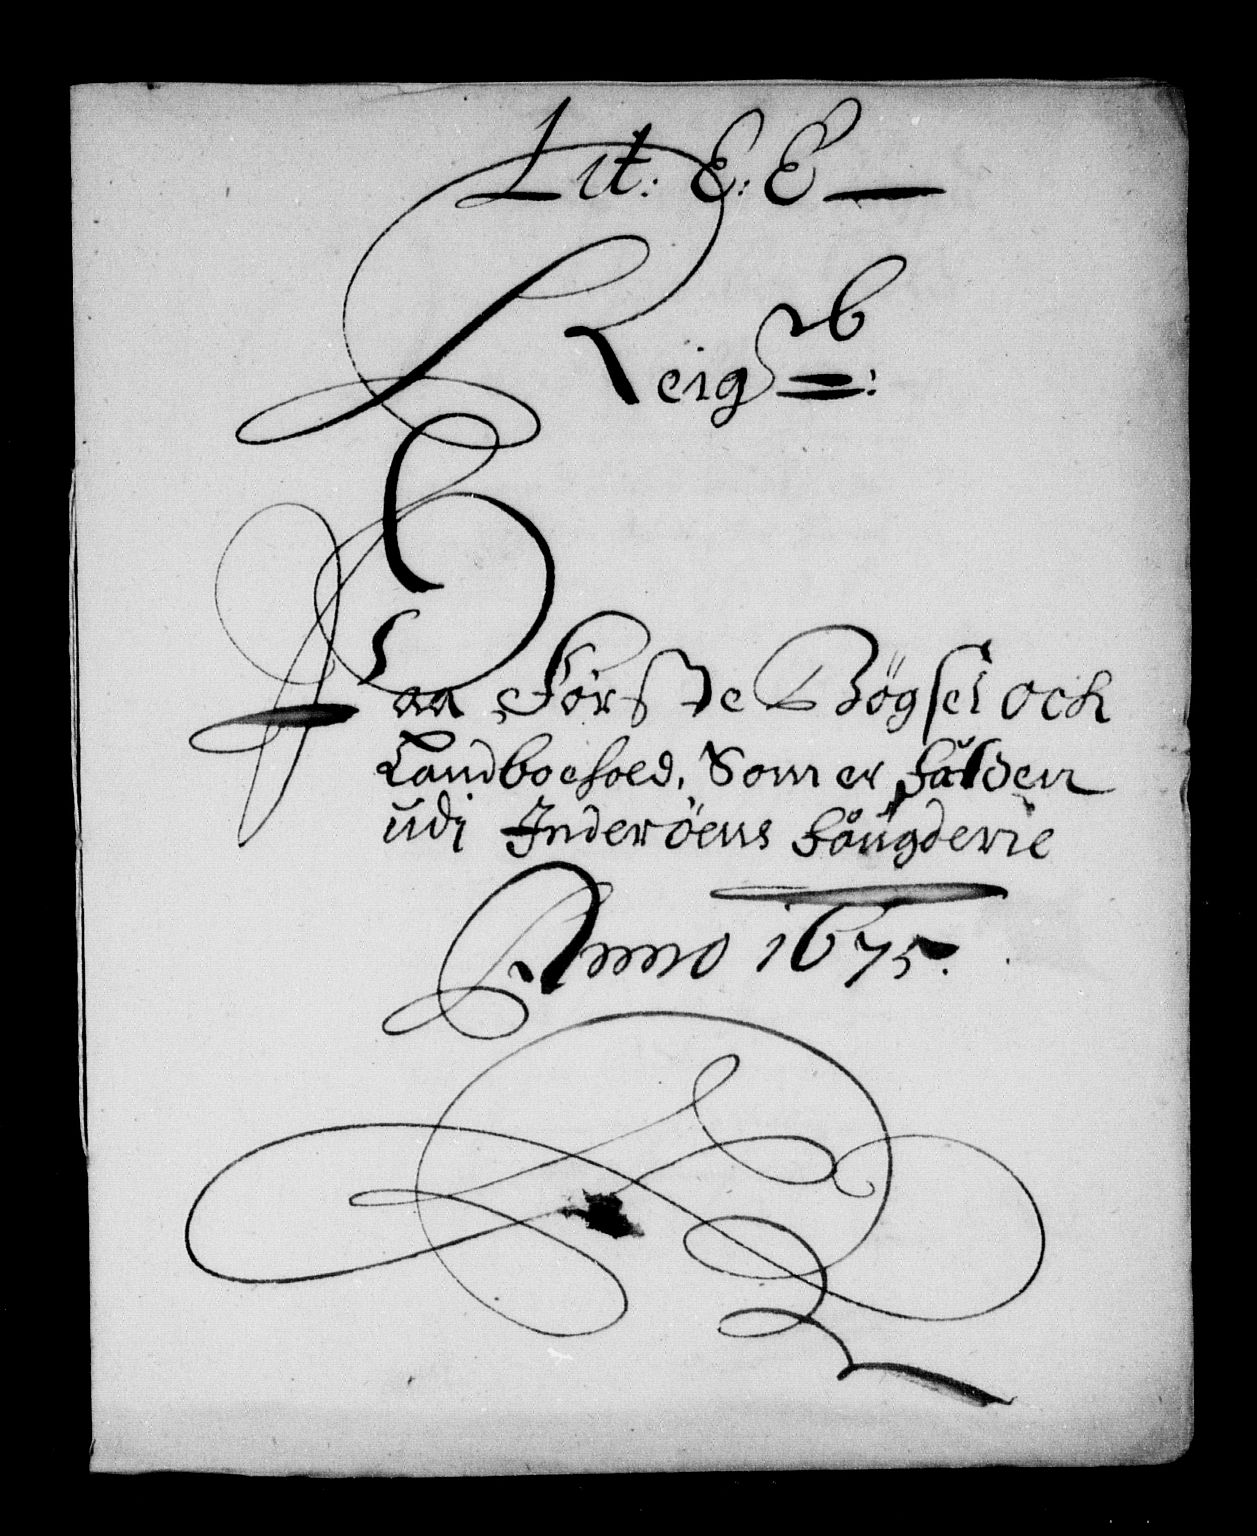 Lit: E: E
Reigst:
Paa Første Bögsel ock
Landboehold, Som er falden
udi Inderöens fougderie
Anno 1675.